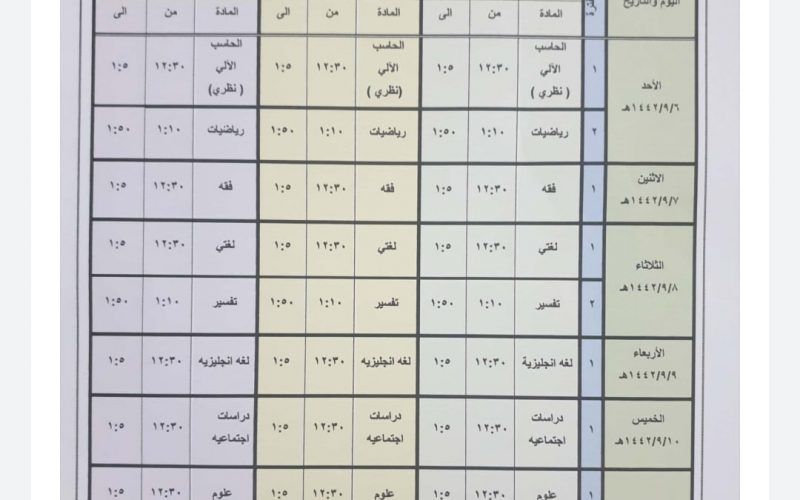 اليوم والتاريخ المادة من الى المادة من الى المادة من الى
الأحد
١٤٤٢/٩/٦هـ
١ الحاسب الآلي ( نظري ) ١٢:٣٠ ١:٥ الحاسب الآلي (نظري ) ١٢:٣٠ ١:٥ الحاسب الآلي ( نظري) ١٢:٣٠ ١:٥
٢ رياضيات ١:١٠ ١:٥٠ رياضيات ١:١٠ ١:٥٠ رياضيات ١:١٠ ١:٥٠
الاثنين
١٤٤٢/٩/٧هـ
١ فقه ١٢:٣٠ ١:٥ فقه ١٢:٣٠ ١:٥ فقه ١٢:٣٠ ١:٥
الثلاثاء
١٤٤٢/٩/٨هـ
١ لغتي ١٢:٣٠ ١:٥ لغتي ١٢:٣٠ ١:٥ لغتي ١٢:٣٠ ١:٥
٢ تفسير ١:١٠ ١:٥٠ تفسير ١:١٠ ١:٥٠ تفسير ١:١٠ ١:٥٠
الأربعاء
١٤٤٢/٩/٩هـ
١ لغه انجليزية ١٢:٣٠ ١:٥ لغه انجليزيه ١٢:٣٠ ١:٥ لغه انجليزيه ١٢:٣٠ ١:٥
الخميس
١٤٤٢/٩/١٠هـ
١ دراسات اجتماعيه ١٢:٣٠ ١:٥ دراسات اجتماعيه ١٢:٣٠ ١:٥ دراسات اجتماعيه ١٢:٣٠ ١:٥
١ علوم ١٢:٣٠ ١:٥ علوم ١٢:٣٠ ١:٥ علوم ١٢:٣٠ ١:٥